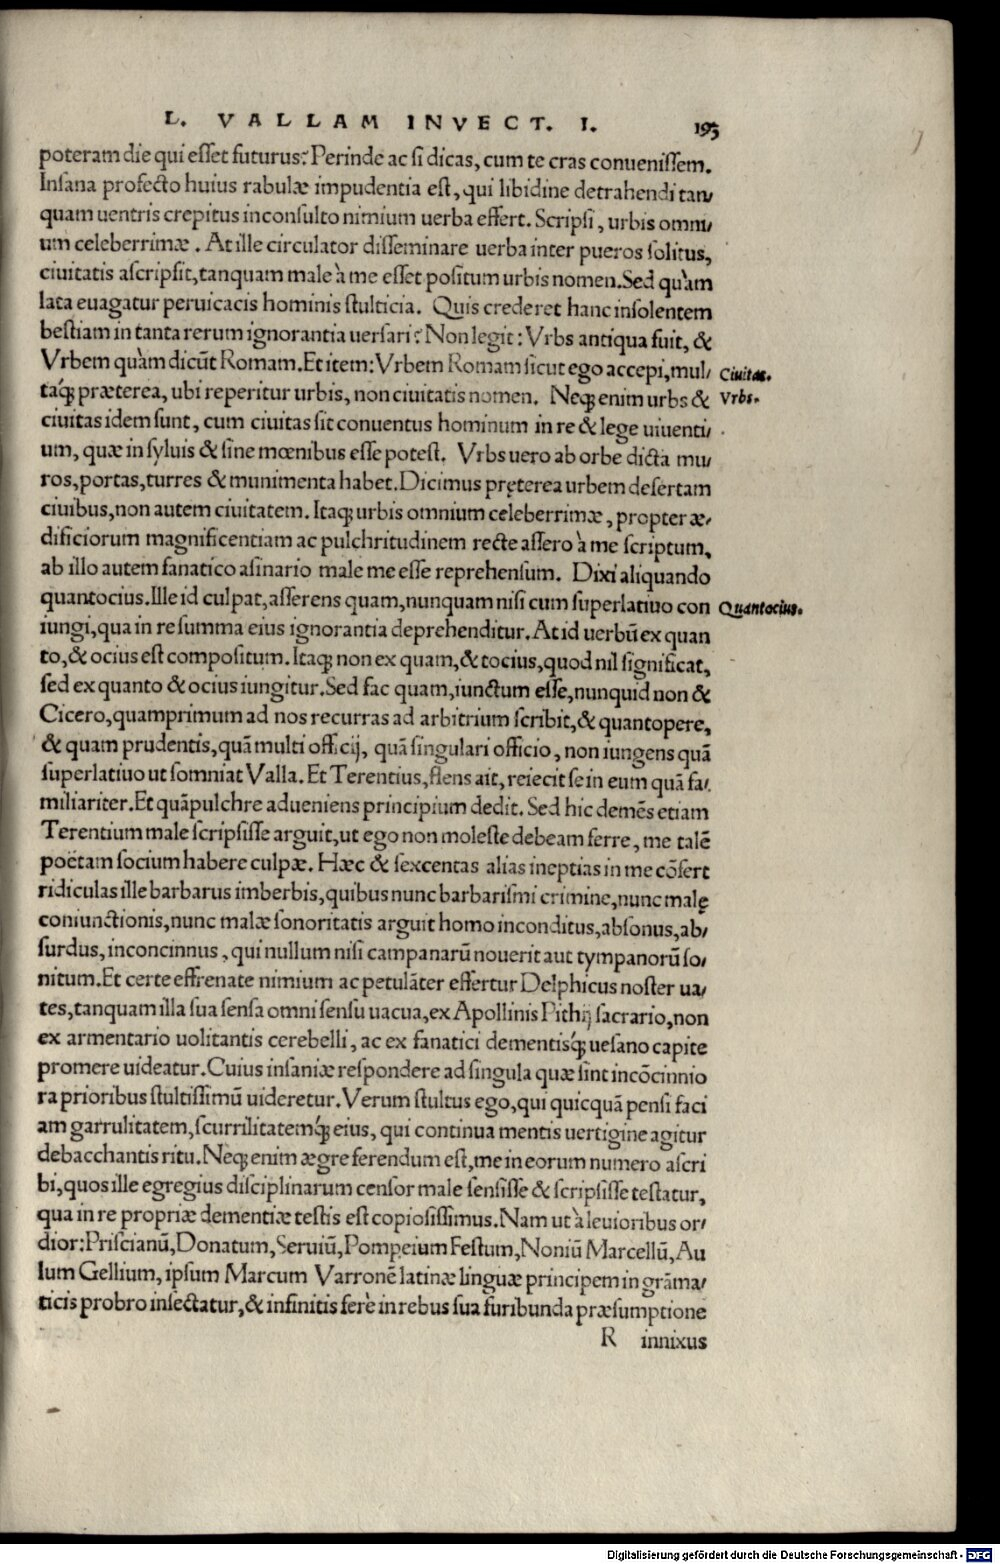 L. VALLAM INVECT. I. 193
poteram die qui esset futurus? Perinde ac si dicas, cum te cras conuenissem.
Insana profecto huius rabulæ impudentia est, qui libidine detrahendi tan/
quam uentris crepitus inconsulto nimium uerba effert. Scripsi, urbis omni/
um celeberrimæ. At ille circulator disseminare uerba inter pueros solitus,
ciuitatis ascripsit, tanquam male à me esset positum urbis nomen. Sed quàm
lata euagatur peruicacis hominis stulticia. Quis crederet hanc insolentem
bestiam in tanta rerum ignorantia uersari? Non legit: Vrbs antiqua fuit, &
Vrbem quàm dicūt Romam. Et item: Vrbem Romam sicut ego accepi, mul/
Ciuitas.
taq́; præterea, ubi reperitur urbis, non ciuitatis nomen. Neq; enim urbs &
Vrbs.
ciuitas idem sunt, cum ciuitas sit conuentus hominum in re & lege uiuenti/
um, quæ in syluis & sine mœnibus esse potest. Vrbs uero ab orbe dicta mu/
ros, portas, turres & munimenta habet. Dicimus pręterea urbem desertam
ciuibus, non autem ciuitatem. Itaq; urbis omnium celeberrimæ, propter æ/
dificiorum magnificentiam ac pulchritudinem recte assero à me scriptum,
ab illo autem fanatico asinario male me esse reprehensum. Dixi aliquando
quantocius. Ille id culpat, asserens quam, nunquam nisi cum superlatiuo con
Quantocius.
iungi, qua in re summa eius ignorantia deprehenditur. At id uerbū ex quan
to, & ocius est compositum. Itaq; non ex quam, & tocius, quod nil significat,
sed ex quanto & ocius iungitur. Sed fac quam, iunctum esse, nunquid non &
Cicero, quamprimum ad nos recurras ad arbitrium scribit, & quantopere,
& quam prudentis, quā multi officij, quā singulari officio, non iungens quā
superlatiuo ut somniat Valla. Et Terentius, flens ait, reiecit se in eum quā fa/
miliariter. Et quāpulchre adueniens principium dedit. Sed hic demēs etiam
Terentium male scripsisse arguit, ut ego non moleste debeam ferre, me talē
poëtam socium habere culpæ. Hæc & sexcentas alias ineptias in me cōfert
ridiculas ille barbarus imberbis, quibus nunc barbarismi crimine, nunc malę
coniunctionis, nunc malæ sonoritatis arguit homo inconditus, absonus, ab/
surdus, inconcinnus, qui nullum nisi campanarū nouerit aut tympanorū so/
nitum. Et certe effrenate nimium ac petulāter effertur Delphicus noster ua/
tes, tanquam illa sua sensa omni sensu uacua, ex Apollinis Pithij sacrario, non
ex armentario uolitantis cerebelli, ac ex fanatici dementisq́; uesano capite
promere uideatur. Cuius insaniæ respondere ad singula quæ sint incōcinnio
ra prioribus stultissimū uideretur. Verum stultus ego, qui quicquā pensi faci
am garrulitatem, scurrilitatemq́; eius, qui continua mentis uertigine agitur
debacchantis ritu. Neq; enim ægre ferendum est, me in eorum numero ascri
bi, quos ille egregius disciplinarum censor male sensisse & scripsisse testatur,
qua in re propriæ dementiæ testis est copiosissimus. Nam ut à leuioribus or/
dior: Priscianū, Donatum, Seruiū, Pompeium Festum, Noniū Marcellū, Au
lum Gellium, ipsum Marcum Varronē latinæ linguæ principem in grāma/
ticis probro insectatur, & infinitis ferè in rebus sua furibunda præsumptione
R innixus
Digitalisierung gefördert durch die Deutsche Forschungsgemeinschaft - DFG